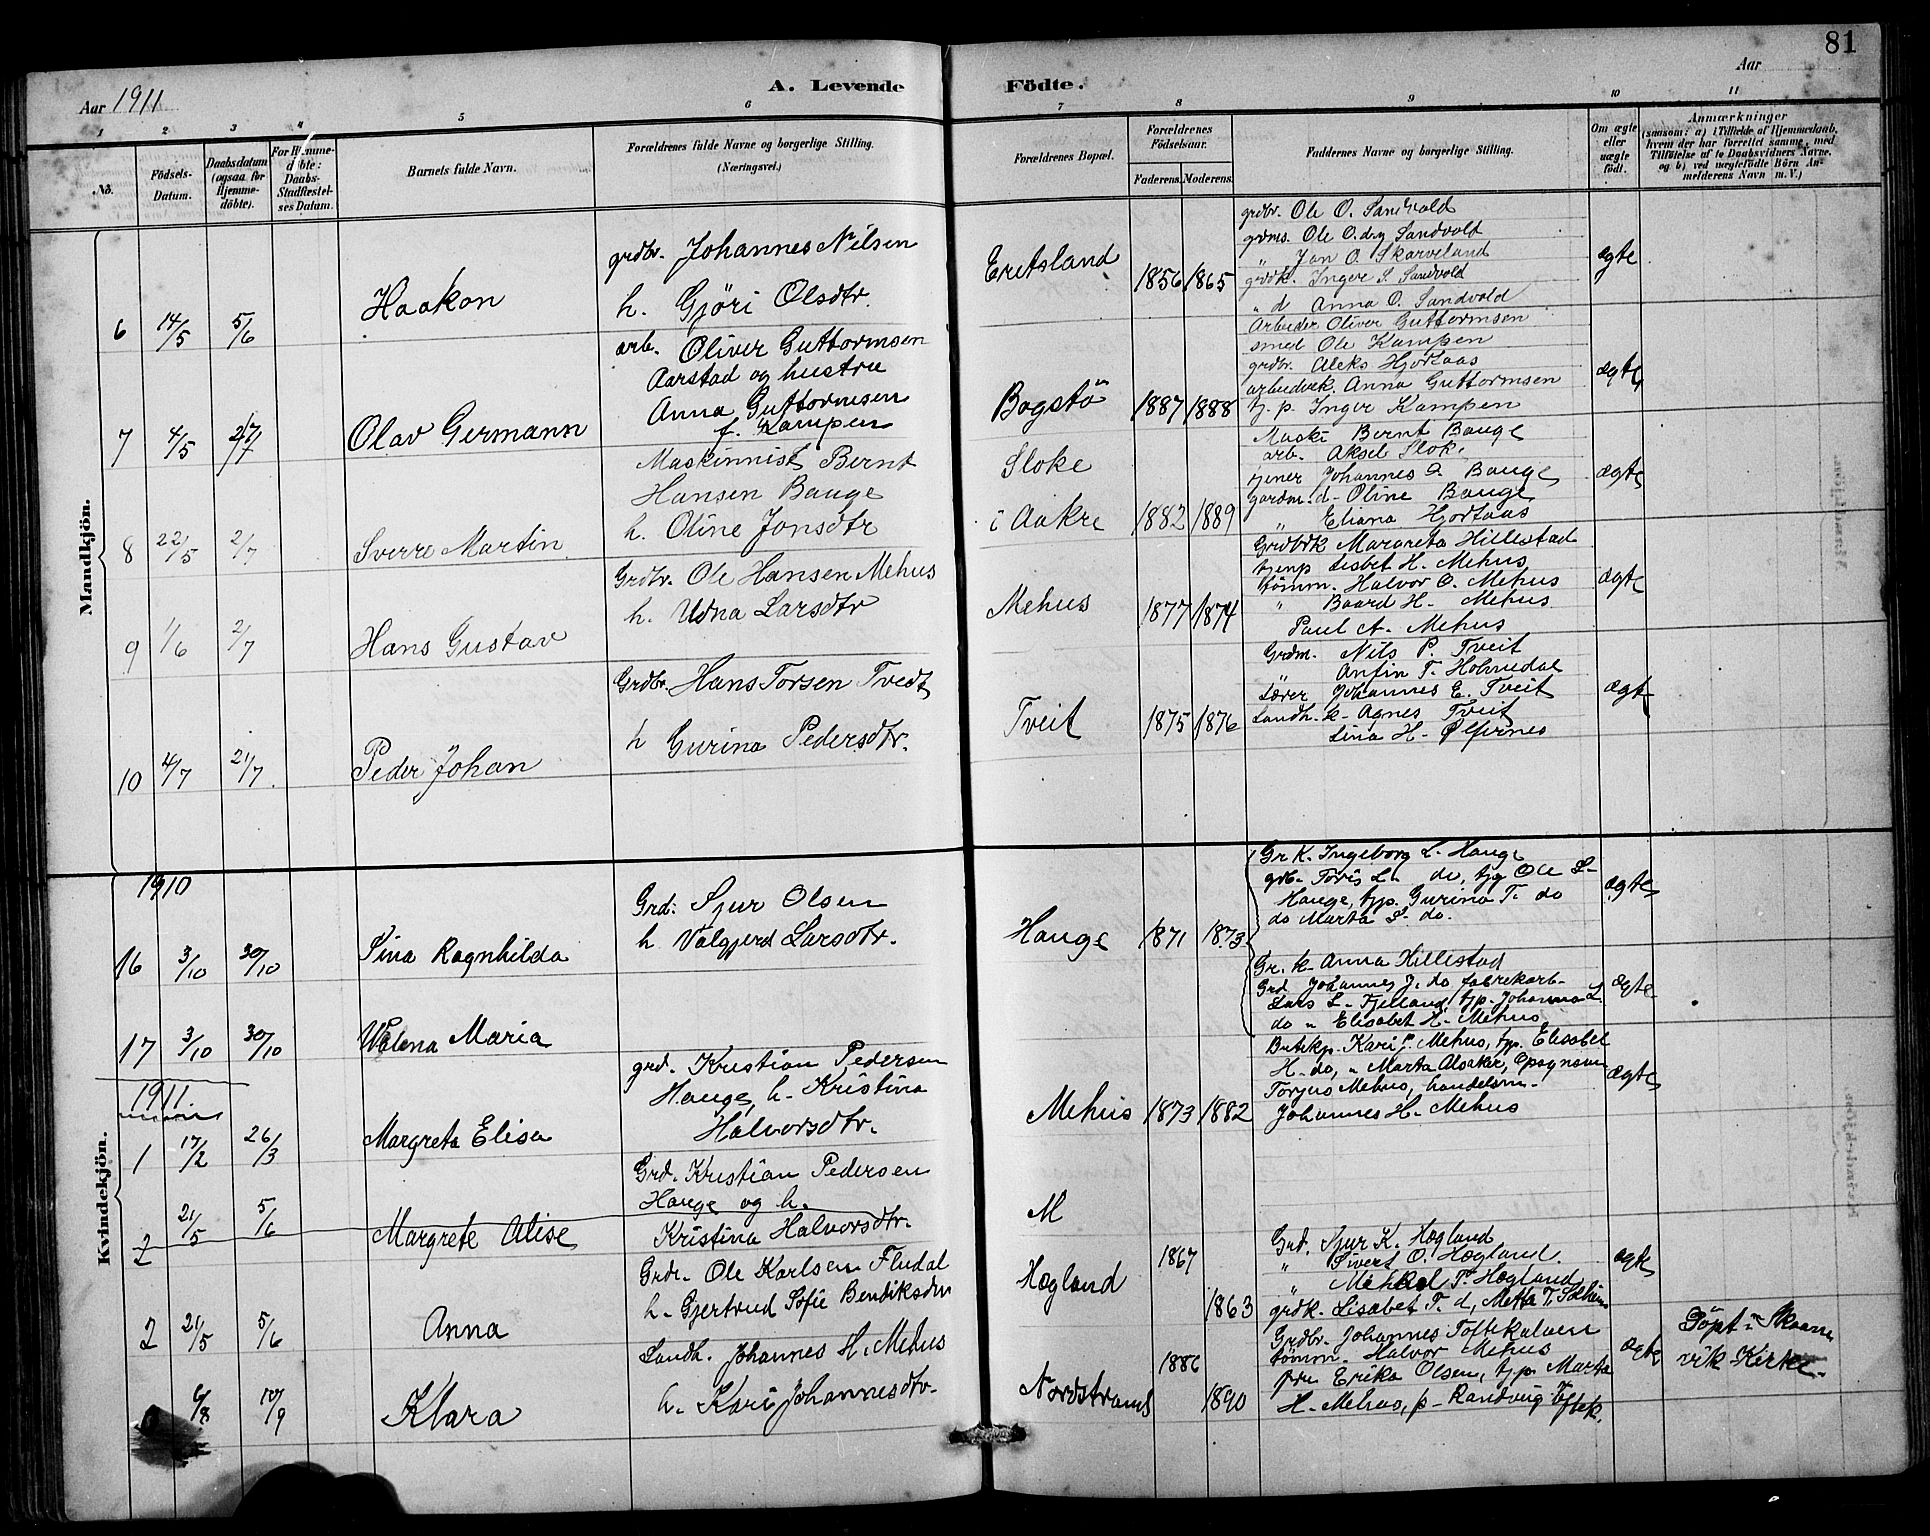 81
Aar 1911
A. Levende
Födte.
Aar
1 2 3 4 5 6 7 8 9 10 11
No.
Födsels-Datum.
Daabsdatum (ogsaa for Hjemme-döbte).
For Hjemme-döbte: Daabs-Stadfæstel-ses Datum.
Barnets fulde Navn.
Forældrenes fulde Navne og borgerlige Stilling.
(Næringsvei.)
Forældrenes Bopæl.
Forældrenes Födselsaar.
Faderens. Moderens.
Faddernes Navne og borgerlige Stilling.
Om ægte eller uægte födt.
Anmærkninger
(saasom: a) i Tilfælde af Hjemmedaab, hvem der har forrettet samme, med Tilföielse af to Daabsvidners Navne, og b) ved uægtefödte Börn An-melderens Navn m. V.)
Mandkjön.
6 14/5 5/6 Haakon
grdbr. Johannes Nilsen
h. Gjöri Olsdtr.
Eretsland 1856 1865
grdbr. Ole O. Sandvold
grdms. Ole O. d.y Sandvold
" Jon O. Skarveland
grdk. Inger S. Sandvold
" d Anna O. Sandvold
ægte
7 4/5 2/7 Olav Germann
arb. Oliver Guttormsen
Aarstad og hustru
Anna Guttormsen
f. Kampen
Bogstö 1887 1888
Arbeider Oliver Guttormsen
smed Ole Kampen
grdbr. Aleks Hjortaas
arbeidsk. Anna Guttormsen
tj. p. Inger Kampen
ægte
8 22/5 2/7 Sverre Martin
Maskinnist Bernt
Hansen Bauge
h. Oline Jonsdtr
Sloke
i Aakre 1882 1889
Maski Bernt Bauge
arb. Aksel Sloke
tjener Johannes O. Bauge
gardm. d- Oline Bauge
" Eliana Hjortaas
ægte
9 1/6 2/7 Hans Gustav
Grdbr. Ole Hansen Mehus
h. Udna Larsdtr
Mehus 1877 1874
Grdbrk Margreta Hillestad
tjenp Lisbet H. Mehus
tömm. Halvor O. Mehus
" Baard H. Mehus
Paul A. Mehus
ægte
10 4/7 21/7 Peder Johan
Grdbr. Hans Torsen Tvedt
h Gurina Pedersdtr.
Tveit 1875 1876
Grdm. Nils P. Tveit
Anfin T. Holmedal
Lærer Johannes E. Tveit
Landh. k- Agnes Tveit
Lina H. Ølfernes
ægte
Kvindekjön.
1910
16 3/10 30/10 Sina Ragnhilda
Grd: Sjur Olsen
h. Valgjerd Larsdtr.
Hauge 1871 1873
Gr K. Ingeborg L. Hauge
grb. Toris L- do, tjg Ole L-
Hauge, tjp. Gurina T. do
do Marta L. do.
ægte
17 3/10 30/10 Valena Maria
Gr. k- Anna Hillestad
Grd Johannes J. do fabrekarb-
Lars L- Fjelland, tjp- Johanna L.
do " Elisabet H- Mehus
ægte
1911
1 17/2 26/3 Margreta Elisa
grd. Kristian Pedersen
Hauge, h- Kristina
Halvorsdtr.
Mehus 1873 1882
Butikp. Kari J. Mehus, tjp. Elisabet
H- do, " Marta Alsaker, Opsognsm
Torjus Mehus, handelsm-
Johannes H- Mehus
ægte
2 21/5 5/6 Margrete Alise
Grd. Kristian Pedersen
Hauge og h.
Kristina Halvorsdtr.
M
2 21/5 5/6 Anna
Grdr. Ole Karlsen Fludal
h. Gjertrud Sofie Bendiksdtr
Hægland 1867 1863
Grd. Sjur K. Hægland
" Sivert O. Hægland.
" Mehael T. Hægland
grdk. Lisabet T. d, Metta T. Solheim
ægte
6/8 10/9 Klara
Landh. Johannes H. Mehus
h. Kari Johannesdtr.
Nordstrand 1886 1890
Grdbr. Johannes Toftekalven
tömm. Halvor Mehus
fru Erika Olsen, tjp. Marta
H. Mehus, p- Randveig Toftek.
ægte
Döpt i Skaane
vik Kirke.